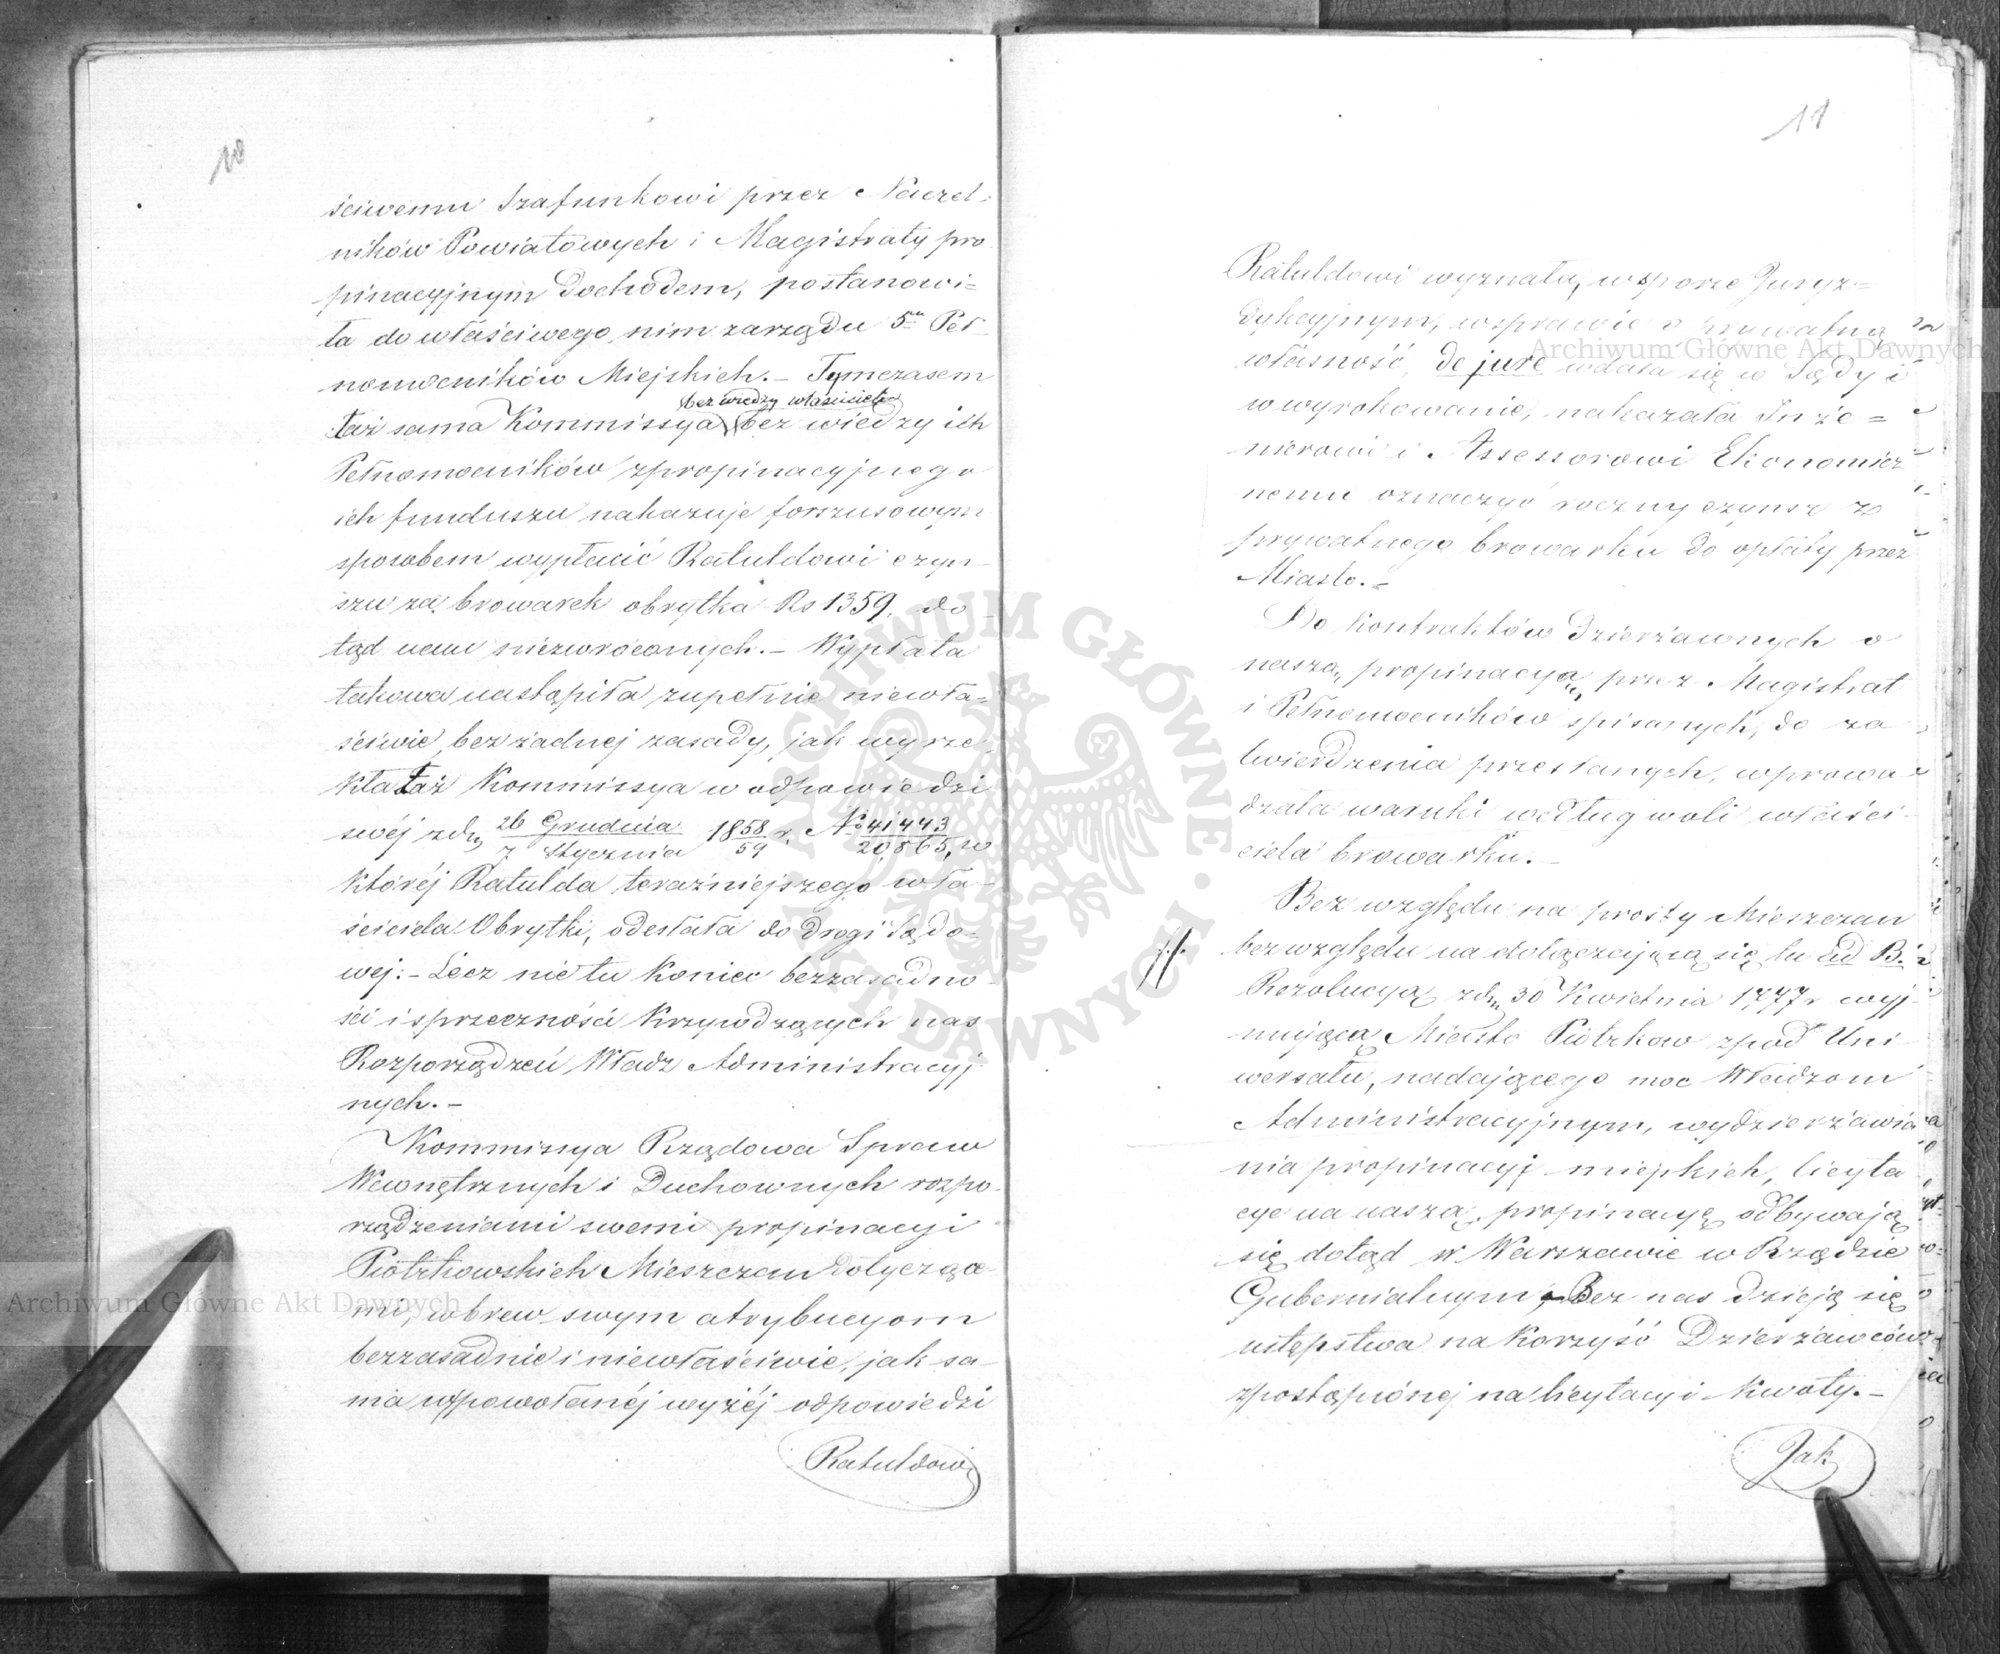 10
ściwemu szafunkowi przez Naczel-
ników Powiatowych i Magistraty pro
pinacyjnym dochodem, postanowi=
ła do właściwego nim zarządu 5ciu Peł-
nomocników Miejskich. - Tymczasem
bez wiedzy właściciela
taż sama Kommissya bez wiedzy ich
Pełnomocników zpropinacyjnego
ich funduszu nakazuje forszusowym
sposobem wypłacić Ratuldowi czyn-
szu za browarek obrytka Rs 1359, do
tąd nam niezwróconych. - Wypłata
takowa nastąpiła zupełnie niewła-
ściwie, bez żadnej zasady, jak wyrze
kła taż Kommissya w odpowiedzi
swéj zdn 26 Grudnia 1858 r. No 41443
7 Stycznia 59 20,865, w
któréj Ratulda teraźniejszego wła-
ściciela Obrytki, odesłała do drogi Sądo-
wej. - Lecz nie tu koniec bezzasadno
ści i sprzeczności krzywdzących nas
Rozporządzeń Władz Administracyj
nych. -
Kommissya Rządowa Spraw
Wewnętrznych i Duchownych rozpo-
rządzeniami swemi propinacyi
Piotrkowskich Mieszczan dotyczące-
mi, wbrew swym atrybucyom
bezzasadnie i niewłaściwie, jak sa-
ma wpowołanéj wyżéj odpowiedzi
Ratuldowi
11
Ratuldowi wyznała, w sporze Juryz=
dykcyjnym, wsprawie o prywatną
własność, de jure wdała się w Sądy i
w wyrokowanie, nakazała Inże=
nierowi i Assessorowi Ekonomicz
nemu oznaczyć roczny czynsz z
prywatnego browarku do opłaty przez
Miasto. -
Do kontraktów dzierżawnych o
naszą propinacyą przez Magistrat
i Pełnomocników spisanych, do za
twierdzenia przesłanych, wprowa
dzała waruki według woli właści-
ciela browarku. -
Bez względu na prośby Mieszczan
bez względu na dołączającą się tu ad B.
Rezolucyą zdn 30 Kwietnia 1777 r wyj
mującą Miasto Piotrkow zpod Uni
wersału, nadającego moc Władzom
Administracyjnym, wydzierżawia
nia propinacyj miejskich, licyta
cye na naszą propinacyę odbywają
się dotąd w Warszawie w Rządzie
Gubernialnym, - Bez nas dzieją się
ustępstwa na korzyść Dzierżawców
zpostąpiónej na licytacyi kwoty. -
Jak
Archiwum Główne Akt Dawnych
Archiwum Główne Akt Dawnych
ARCHIWUM GŁÓWNE AKT DAWNYCH